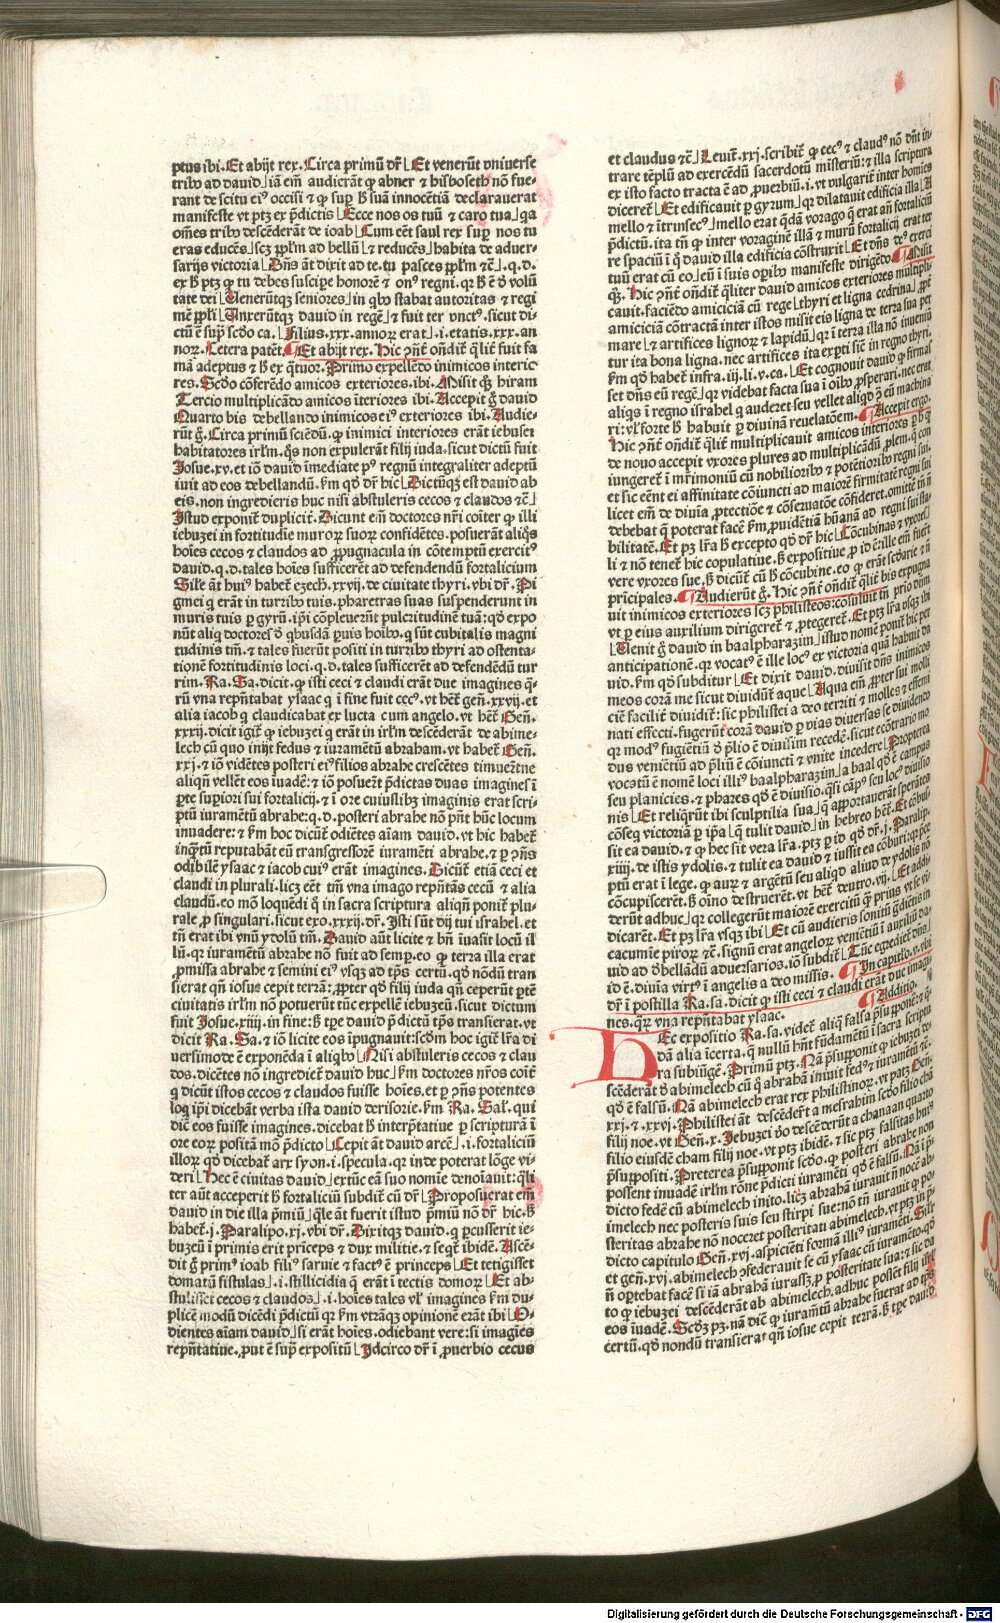 ptus ibi. Et abijt rex. Circa primū dr̄ Et venerūt vniuerse
tribꝰ ad dauid iā em̄ audierāt ꝙ abner ⁊ hisboseth nō fue-
rant de scitu eiꝰ occisi ⁊ ꝙ suꝑ ħ suā innocētiā declarauerat
manifeste vt ptꝫ ex p̄dictis Ecce nos os tuū ⁊ caro tua qa
om̄es tribꝰ descēderāt de iacob Cum eēt saul rex suꝑ nos tu
eras educēs scꝫ ppl̄m ad bellū ⁊ reducēs habita de aduer-
sarijs victoria Dn̄s āt dixit ad te. tu pasces ppl̄m ⁊c̄ .q.d.
ex ħ ptꝫ ꝙ tu debes suscipe honorē ⁊ onꝰ regni. qꝛ ħ ē ď volū
tate dei Uenerūtqꝫ seniores in qbꝰ stabat autoritas ⁊ regi
mē ppl̄i Unxerūtqꝫ dauid in regē ⁊ fuit ter vnctꝰ. sicut di-
ctū ē supͣ scďo ca. Filius .xxx. annoꝝ erat .i. etatis .xxx. an
noꝝ. Cetera patēt. Et abijt rex. Hic ꝯn̄t on̄dit̄ qlit̄ fuit fa
mā adeptus ⁊ ħ ex q̄tuor. Primo expellēdo inimicos interio
res. Scďo cōferēdo amicos exteriores. ibi. Misit qꝫ hiram
Tercio multiplicādo amicos īteriores ibi. Accepit g̊ dauid
Quarto bis debellando inimicos eiꝰ exteriores ibi. Audie-
rūt g̊. Circa primū sciēdū. ꝙ inimici interiores erāt iebusei
habitatores irl̄m. q̄s non expulerāt filij iuda. sicut dictū fuit
Josue .xv. et iō dauid īmediate pꝰ regnū integraliter adeptū
iuit ad eos debellandū. ꝃm qď dr̄ hic Dictūqꝫ est dauid ab
eis. non ingredieris huc nisi abstuleris cecos ⁊ claudos ⁊c̄
Istud exponit̄ duplicit̄. Dicunt em̄ doctores nr̄i cōiter ꝙ illi
iebuzei in fortitudīe muroꝝ suoꝝ confidētes. posuerāt aliqs
hoīes cecos ⁊ claudos ad ꝓpugnacula in cōtemptū exercitꝰ
dauid .q.d. tales hoīes sufficerēt ad defendendū fortalicium
Sil̄e āt huiꝰ habet̄ ezech. xxvij. de ciuitate thyri. vbi dr̄. Pi
gmei q erāt in turribꝰ tuis. pharetras suas suspenderunt in
muris tuis ꝑ gyrū. ip̄i cōpleuerūt pulcritudinē tuā: qď expo
nūt aliq doctores ď qbusdā ꝑuis hoībꝰ. q sūt cubitalis magni
tudinis tm̄. ⁊ tales fuerūt positi in turribꝰ thyri ad ostenta-
tionē fortitudinis loci. q.d. tales sufficerēt ad defendēdū tur
rim. Ra. Sa. dicit. ꝙ isti ceci ⁊ claudi erāt due imagines q̄-
rū vna rep̄ntabat ysaac q in fine fuit cecꝰ. vt hēt̄ gen̄. xxvij. et
alia iacob q claudicabat ex lucta cum angelo. vt hēt̄ Gen̄.
xxxij. dicit igit̄ ꝙ iebuzei q erāt in irl̄m descēderāt de abime-
lech cū quo inijt fedus ⁊ iuramētū abraham. vt habet̄ Gen̄.
xxj. ⁊ iō vidētes posteri eiꝰ filios abrahe crescētes timuerūtne
aliqn̄ vellēt eos iuadē: ⁊ iō posuerūt p̄dictas duas imagines ī
ꝑte supiori sui fortalicij. ⁊ ī ore cuiuslibꝫ imaginis erat scri-
ptū iuramētū abrahe: q.d. posteri abrahe nō pn̄t hūc locum
inuadere: ⁊ ꝃm hoc dicūt̄ odiētes aīam dauid. vt hic habet̄
inqͣtū reputabāt eū transgressorē iuramēti abrahe. ⁊ ꝑ ꝯn̄s
odibilē ysaac ⁊ iacob cuiꝰ erāt imagines. Dicūt̄ etiā ceci et
claudi in plurali. licꝫ eēt tm̄ vna imago rep̄ntās cecū ⁊ alia
claudū. eo mō loquēdi q̄ in sacra scriptura aliqn̄ ponit̄ plu-
rale ꝓ singulari. sicut exo. xxxij. dr̄. Isti sūt dij tui israhel. et
tn̄ erat ibi vnū ydolū tm̄. Dauid aūt licite ⁊ bn̄ iuasit locū il
lū. qꝛ iuramētū abrahe nō fuit ad semꝑ. eo ꝙ terra illa erat
ꝓmissa abrahe ⁊ semini eiꝰ vsqꝫ ad tp̄s certū. qď nōdū tran
sierat qn̄ iosue cepit terrā: ꝓpter qď filij iuda qn̄ ceperūt ꝑtē
ciuitatis irl̄m nō potuerūt tūc expellē iebuzeū. sicut dictum
fuit Josue. xiij. in fine: ꝫ tpe dauid p̄dictū tp̄s transierat. vt
dicit Ra. Sa. ⁊ iō licite eos ipugnauit: scďm hoc igit̄ lr̄a di
uersimode ē exponēda ī aliqbꝰ Nisi abstuleris cecos ⁊ clau
dos. dicētes nō ingrediet̄ dauid huc ꝃm doctores nr̄os cōit̄
q dicūt istos cecos ⁊ claudos fuisse hoīes. et ꝑ ꝯn̄s potentes
loq ip̄i dicebāt verba ista dauid derisorie. ꝃm Ra. Sal̄. qui
dic̄ eos fuisse imagines. dicebat̄ ħ interp̄tatiue ꝑ scripturā ī
ore eoꝝ positā mō p̄dicto Cepit āt dauid arcē .i. fortaliciū
illoꝝ qď dicebat̄ arx syon .i. specula. qꝛ inde poterat lōge vi-
deri Hec ē ciuitas dauid extūc eā suo nomīe denoīauit: qͣli
ter aūt acceperit ħ fortaliciū subdit̄ cū dr̄ Proposuerat em̄
dauid in die illa p̄miū qͣle āt fuerit istud p̄miū nō dr̄ hic. ꝫ
habet̄ .j. Paralipo. xj. vbi dr̄. Dixitqꝫ dauid. q ꝑcusserit ie-
buzeū ī primis erit pr̄iceps ⁊ dux militie. ⁊ seqt̄ ibidē. Ascē-
dit g̊ primꝰ ioab filiꝰ saruie ⁊ factꝰ ē princeps Et tetigisset
domatū fistulas .i. stillicidia q̄ erāt ī tectis domoꝝ Et ab-
stulisset cecos ⁊ claudos .i. hoīes tales vl̄ imagines ꝃm du-
plicē modū dicēdi p̄dictū qꝛ ꝃm vtrāqꝫ opinionē erāt ibi O-
dientes aīam dauid si erāt hoīes. odiebant vere: si imagīes
rep̄ntatiue. ꝓut ē supͣ expositū Idcirco dr̄ ī ꝓuerbio cecus
et claudus ⁊c̄ Leuit̄. xxj. scribit̄ ꝙ cecꝰ ⁊ claudꝰ nō dn̄t in-
trare tēplū ad exercēdū sacerdotū misteriū: ⁊ illa scriptura
ex isto facto tracta ē ad ꝓuerbiū .i. vt vulgarit̄ inter homīes
diceret̄ Et edificauit ꝑ gyrum qꝛ dilatauit edificia illa A
mello ⁊ ītrinsecꝰ mello erat qdā vorago q̄ erat an̄ fortaliciū
p̄dictū. ita tn̄ ꝙ inter voraginē illā ⁊ murū fortalicij erat ter
re spaciū ī q̊ dauid illa edificia cōstruxit Et dn̄s deꝰ exerci
tuū erat cū eo eū ī suis opibꝰ manifeste dirigēdo. Misit
qꝫ. Hic ꝯn̄t on̄dit̄ qliter dauid amicos exteriores multipli-
cauit. faciēdo amiciciā cū rege thyri et ligna cedrina ꝓpt̄
amiciciā cōtractā inter istos misit eis ligna de terra sua per
mare ⁊ artifices lignoꝝ ⁊ lapidū qꝛ ī terra illa nō inueniū
tur ita bona ligna. nec artifices ita expti sic̄ in regno thyri.
ꝃm qď habet̄ infra. iij. li. v. ca. Et cognouit dauid ꝙ firmas
set dn̄s eū regē qꝛ videbat facta sua ī oībꝰ ꝓsperari. nec erat
aliqs ī regno israhel q auderet seu vellet aliqd ꝯ̄ eū machina
ri: vl̄ forte ħ habuit ꝑ diuinā reuelatōem. Accepit ergo.
Hic ꝯn̄t on̄dit̄ qlit̄ multiplicauit amicos interiores ꝑ ħ ꝙ
de nouo accepit vxores plures ad multiplicādū ꝓlem. q̄ con
iungeret̄ ī mr̄imoniū cū nobilioribꝰ ⁊ potētioribꝰ regni sui.
et sic eēnt ei affinitate cōiuncti ad maiorē firmitatē regni sui
licet em̄ de diuīa ꝓtectiōe ⁊ cōseruatōe cōfideret. omittē tn̄ n̄
debebat q̄ poterat facē ꝃm ꝓuidētiā hūanā ad regni sui sta-
bilitatē. Et pꝫ lr̄a ħ excepto qď dr̄ hic Cōcubinas ⁊ vxores
li ⁊ nō tenet̄ hic copulatiue. ꝫ expositiue. ꝓ id ē: ille em̄ fuerūt
vere vxores sue. ꝫ dicūt̄ cū ħ cōcubine. eo ꝙ erāt scďarie ⁊ n̄
pr̄icipales. Audierūt g̊. Hic ꝯn̄t on̄dit̄ qlit̄ bis expugna
uit inimicos exteriores scꝫ philisteos: cōsuluit tn̄ prīo dūm
vt ꝑ eius auxilium dirigeret̄ ⁊ ꝓtegeret̄. Et ptꝫ lr̄a vsqꝫ ibi
Uenit g̊ dauid in baalpharazim istud nomē ponit̄ hic per
anticipationē. qꝛ vocatꝰ ē ille locꝰ ex victoria quā habuit da
uid. ꝃm qď subditur Et dixit dauid. diuisit dn̄s inimicos
meos corā me sicut diuidūt̄ aque Aqua em̄ ꝓpter sui molli
ciē facilit̄ diuidit̄: sic philistei a deo territi ⁊ molles ⁊ effemi
nati effecti. fugerūt corā dauid ꝑ vias diuersas se diuidendo
qꝛ modꝰ fugiētiū ď p̄lio ē diuisim recedē. sicut ecōtrario mo
dus veniētiū ad p̄liū ē cōiuncti ⁊ vnite incedere Propterea
vocatū ē nomē loci illiꝰ baalpharazim a baal qď ē campus
seu planicies. ⁊ phares qď ē diuisio. qͣsi cāpꝰ seu locꝰ diuisio
nis Et reliqrūt ibi sculptilia sua q̄ apportauerāt sperātes
cōseq victoriā ꝑ ip̄a q̄ tulit dauid in hebreo hēt̄. Et cōbus-
sit ea dauid. ⁊ ꝙ hec sit vera lr̄a. ptꝫ ꝑ id qď dr̄ .j. Paralip.
xiiij. de istis ydolis. ⁊ tulit ea dauid ⁊ iussit ea cōburi: qꝛ p̄ce
ptū erat ī lege. ꝙ aurū ⁊ argētū seu aliqd aliud de ydolis nō
cōcupisceret̄. ꝫ oīno destruerēt̄. vt hēt̄ deutro. vij. Et addi
derūt adhuc qꝛ collegerūt maiorē exercitū q̄ prius vt se vī
dicarēt. Et pꝫ lr̄a vsqꝫ ibi Et cū audieris sonitū g̊dietis in
cacumīe piroꝝ ⁊c̄. signū erat angeloꝝ venietiū ī auxiliū da-
uid ad ďbellādū aduersarios. iō subdit̄ Tūc egrediet̄ dn̄s
id ē. diuīa virtꝰ ī angelis a deo missis. In capito. v. vbi
dr̄ ī postilla Ra. sa. dicit ꝙ isti ceci ⁊ claudi erāt due imagi
nes. q̄ꝝ vna rep̄ntabat ysaac. Additio.
HEc expositio Ra. sa. videt̄ aliq̄ falsa p̄supponē: ⁊ q̄-
dā alia īcerta. q̄ nullū hn̄t fūdamētū ī sacra scriptu
ra subiūgē. Primū ptꝫ. Nā p̄supponit ꝙ iebuzei de
scēderāt ď abimelech cū q̊ abrahā iniuit fedꝰ ⁊ iuramētū ⁊c̄.
qď ē falsū. Nā abimelech erat rex philistinoꝝ. vt patꝫ Gen̄.
xxj. ⁊. xxvj. Philistei āt descēderūt a mesrahim scďo filio cham
filij noe. vt Gen̄. x. Jebuzei ꝟo descēderūt a chanaan quarto
filio eiusdē cham filij noe. vt ptꝫ ibidē. ⁊ sic ptꝫ falsitas huiꝰ
p̄suppositi. Preterea p̄supponit scďo. ꝙ posteri abrahe non
possent inuadē irl̄m rōne p̄dicti iuramēti qď ē falsū. Nā ī p̄
dicto federe cū abimelech inito. licꝫ abrahā iurauit n̄ nocē ab
imelech nec posteris suis seu stirpi sue: nō tn̄ iurauit ꝙ po
steritas abrahe nō noceret posteritati abimelech. vt ptꝫ in p̄
dicto capitulo Gen̄. xxj. aspiciēti formā illiꝰ iuramēti. Sil̄r
et gen̄. xxvj. abimelech ꝯfederauit se cū ysaac cū iuramēto. qď
n̄ optebat facē si iā abrahā iurasset ꝓ posteritate sua: ⁊ sic da
to ꝙ iebuzei descēderāt ab abimelech. adhuc posset filij isrl̄
eos iuadē. Scďꝫ pꝫ. nā dic̄ ꝙ iuramētū abrahe fuerat ad tp̄s
certū. qď nondū transierat qn̄ iosue cepit terrā. ꝫ tpe dauid